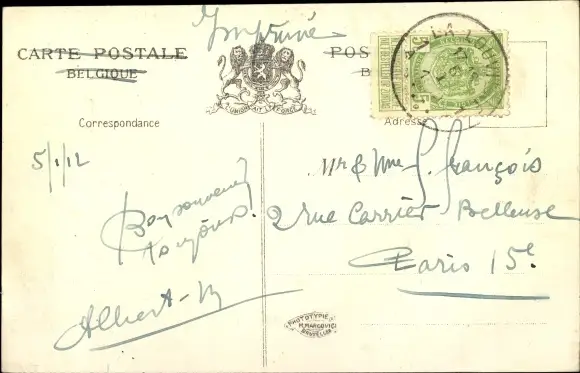 Imprimé
CARTE POSTALE
BELGIQUE
POS
B
L'UNION FAIT LA FORCE
LA LOUVI
Correspondance
Adresse
5/1/12
Bon souvenir
toujours.
Albert
Mr & Mme G. François
2 rue Carrier Belleuse
Paris 15e.
PHOTOTYPIE
H. MARCOVICI
BRUXELLES